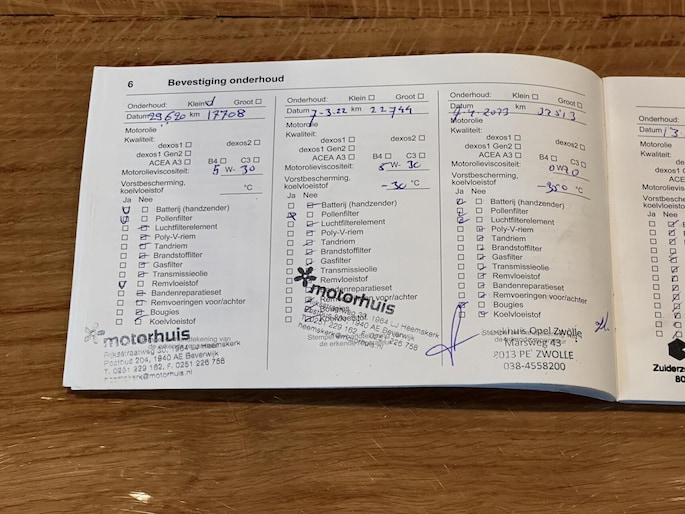 6 Bevestiging onderhoud
Onderhoud: Klein Groot
Datum km 17708
Motorolie
Kwaliteit:
dexos1 dexos2
dexos1 Gen2
ACEA A3 B4 C3
Motorolieviscositeit: 5 W- 30
Vorstbescherming,
koelvloeistof °C
Ja Nee
Batterij (handzender)
Pollenfilter
Luchtfilterelement
Poly-V-riem
Tandriem
Brandstoffilter
Gasfilter
Transmissieolie
Remvloeistof
Bandenreparatieset
Remvoeringen voor/achter
Bougies
Koelvloeistof
motorhuis
Rijksstraatweg 30, 1964 LJ Heemskerk
Postbus 204, 1940 AE Beverwijk
T. 0251 229 162, F. 0251 226 756
heemskerk@motorhuis.nl
Onderhoud: Klein Groot
Datum 7-3-22 km 22744
Motorolie
Kwaliteit:
dexos1 dexos2
dexos1 Gen2
ACEA A3 B4 C3
Motorolieviscositeit: 5 W- 30
Vorstbescherming,
koelvloeistof -30 °C
Ja Nee
Batterij (handzender)
Pollenfilter
Luchtfilterelement
Poly-V-riem
Tandriem
Brandstoffilter
Gasfilter
Transmissieolie
Remvloeistof
Bandenreparatieset
motorhuis
Bougies
Koelvloeistof
1964 LJ Heemskerk
1940 AE Beverwijk
Onderhoud: Klein Groot
Datum km
Motorolie
Kwaliteit:
dexos1 dexos2
dexos1 Gen2
ACEA A3 B4 C3
Motorolieviscositeit: 0W20
Vorstbescherming,
koelvloeistof °C
Ja Nee
Batterij (handzender)
Pollenfilter
Luchtfilterelement
Poly-V-riem
Tandriem
Brandstoffilter
Gasfilter
Transmissieolie
Remvloeistof
Bandenreparatieset
Remvoeringen voor/achter
Bougies
Koelvloeistof
Opel Zwolle
Marsweg 43
8013 PE ZWOLLE
038-4558200
Onderhoud:
Datum
Motorolie
Kwaliteit:
Motorolieviscositeit
Vorstbescherming
koelvloeistof
Ja Nee